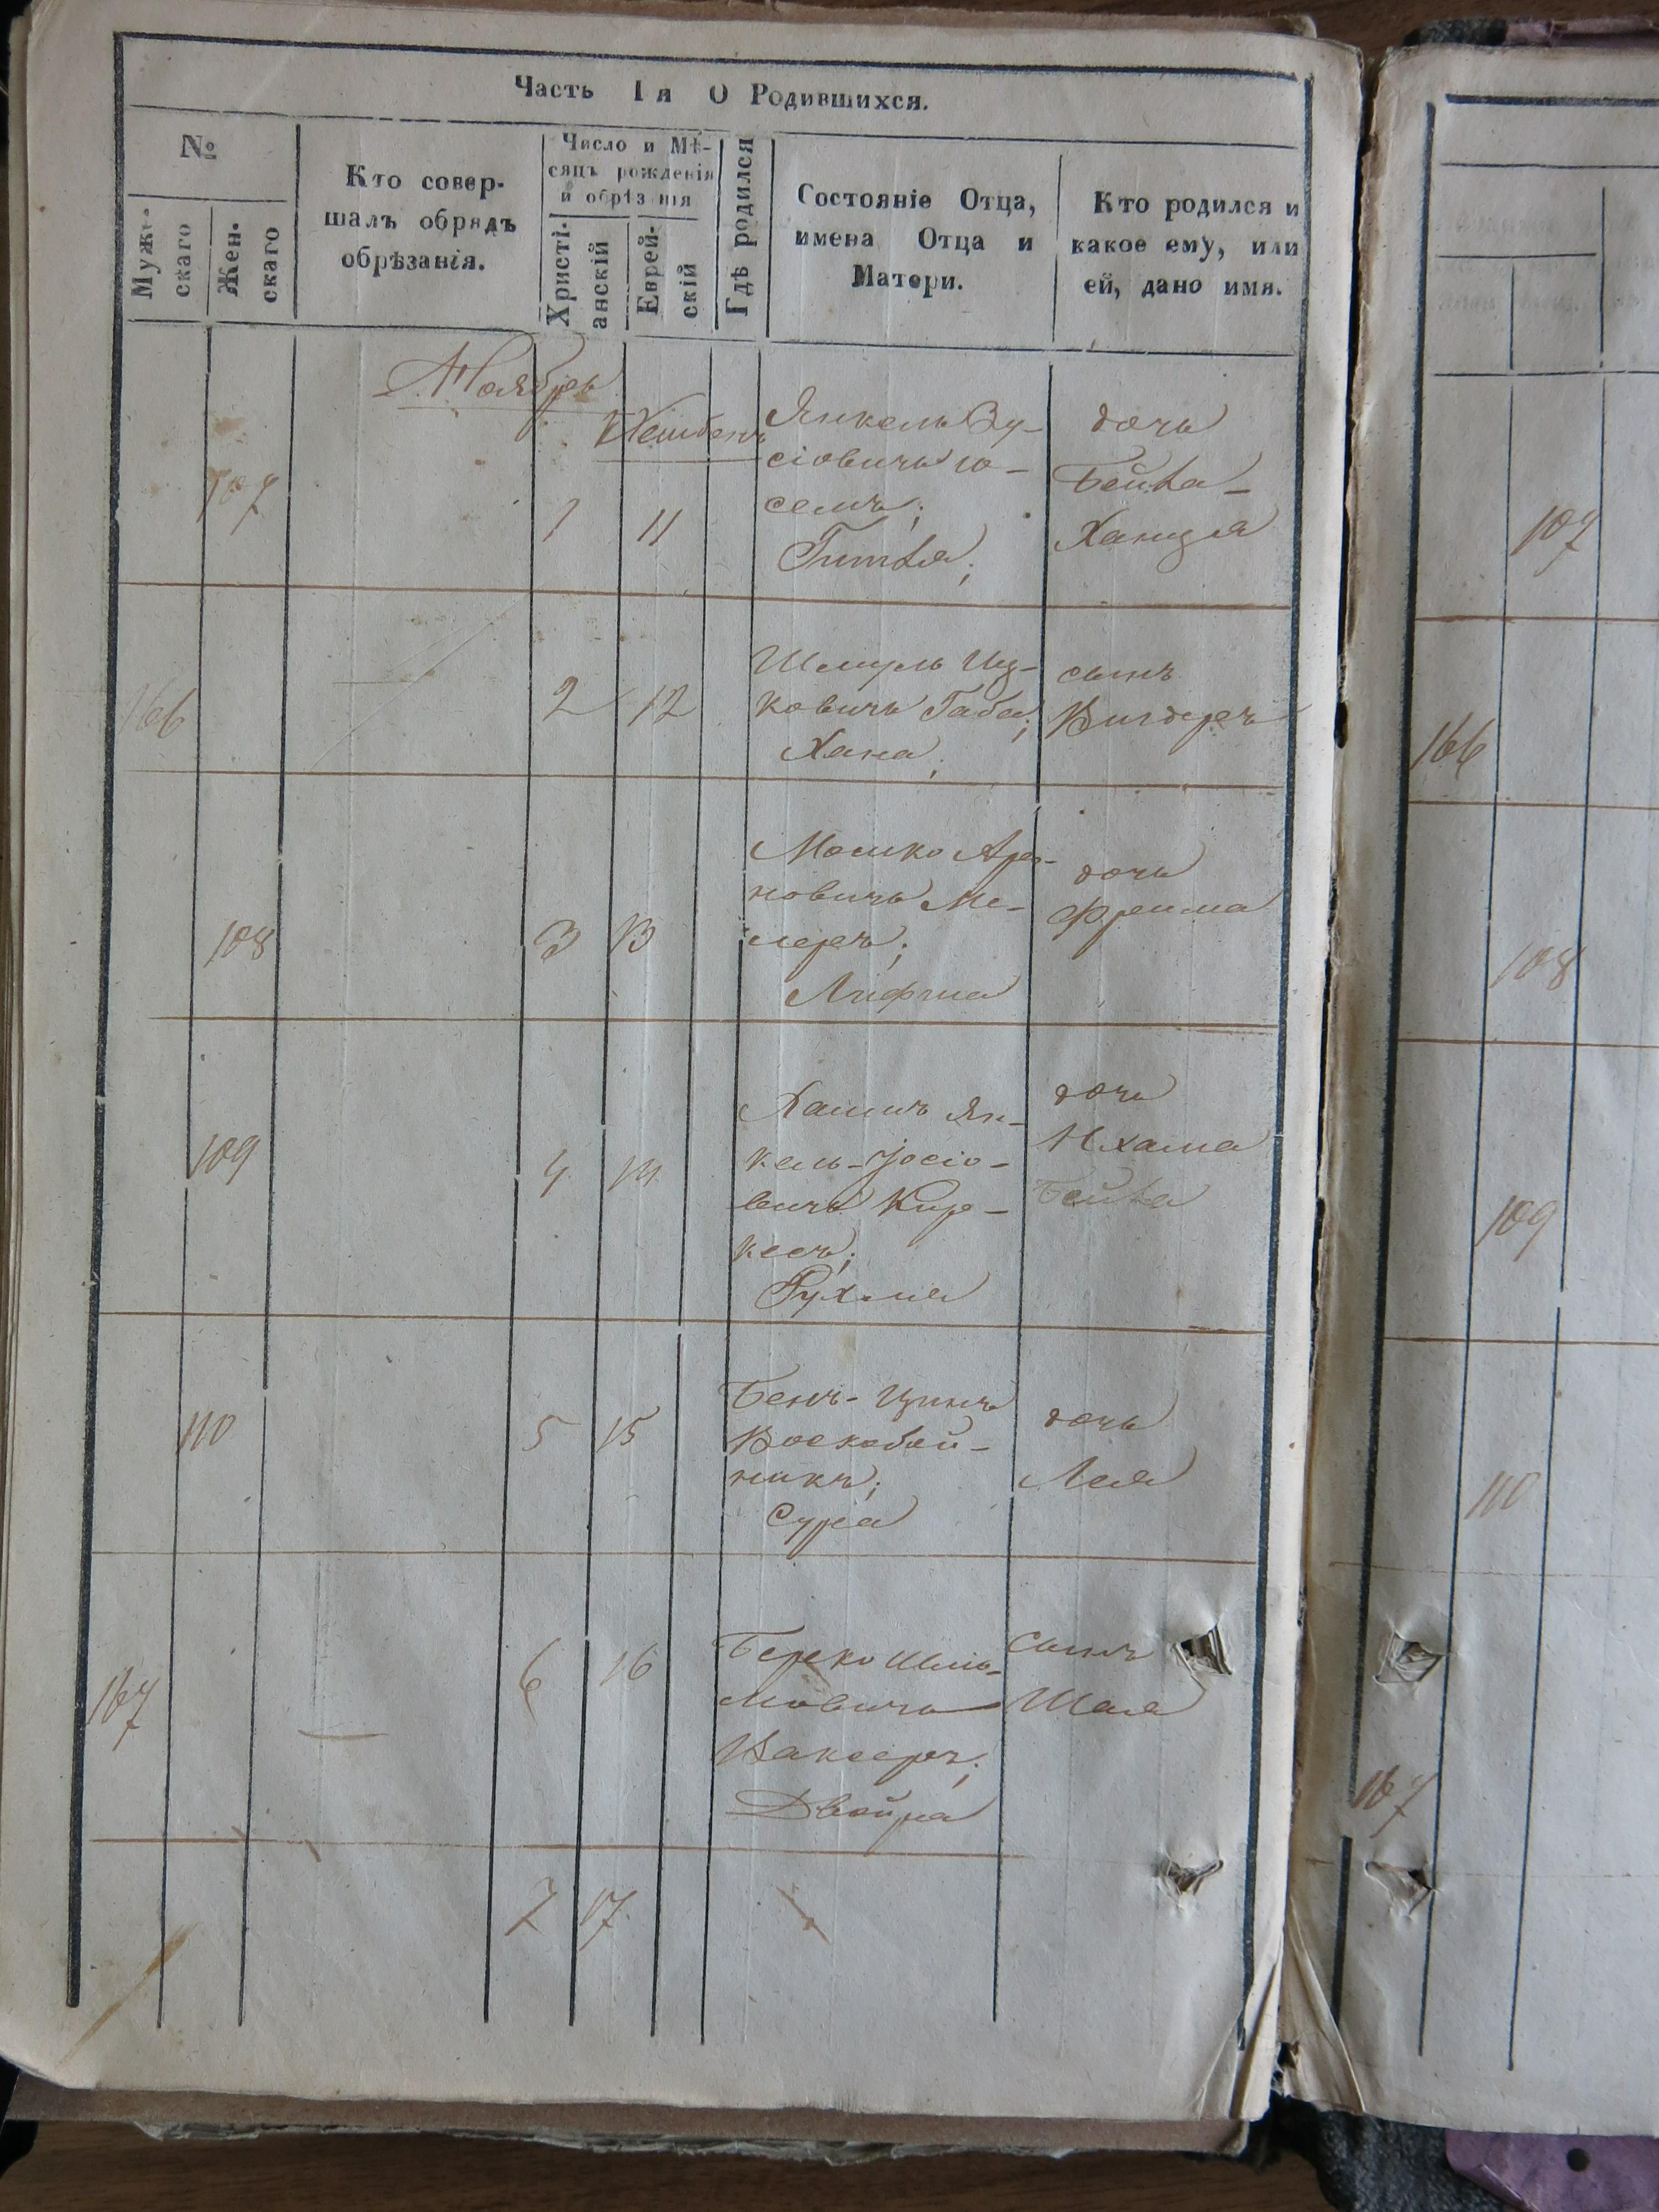 Часть Iя О Родившихся.
№
Муже-
скаго
Жен-
скаго
Кто совер-
шалъ обрядъ
обрѣзанія.
Число и Мѣ-
сяцъ рожденія
и обрѣз нія
Христі-
анскій
Еврей-
скій
Гдѣ родился
Состояніе Отца,
имена Отца и
Матери.
Кто родился и
какое ему, или
ей, дано имя.
Ноябрь
107
1
11
Янкель Зу-
сіовичъ Іо-
селъ;
Гитля;
дочь
Бейла-
166
2
12
Шмуль Иц-
ковичъ Габа;
Хана;
сынъ
Вигдеръ
108
3
13
Мошко Аро-
новичъ Ме-
леръ;
дочь
Фрейма
109
4
14
Хаимъ Ян-
кель-Іосіо-
вичъ Кир-
жееъ;
Рухля
дочь
Нхама
Бейла
110
5
15
Бенъ-Ціинъ
Воскобой-
никъ;
Сура
дочь
Лея
167
6
16
Берко Шлio-
мовичъ
Ваксеръ;
Двойра
Сынъ
Шая
7
17
107
166
108
109
110
167